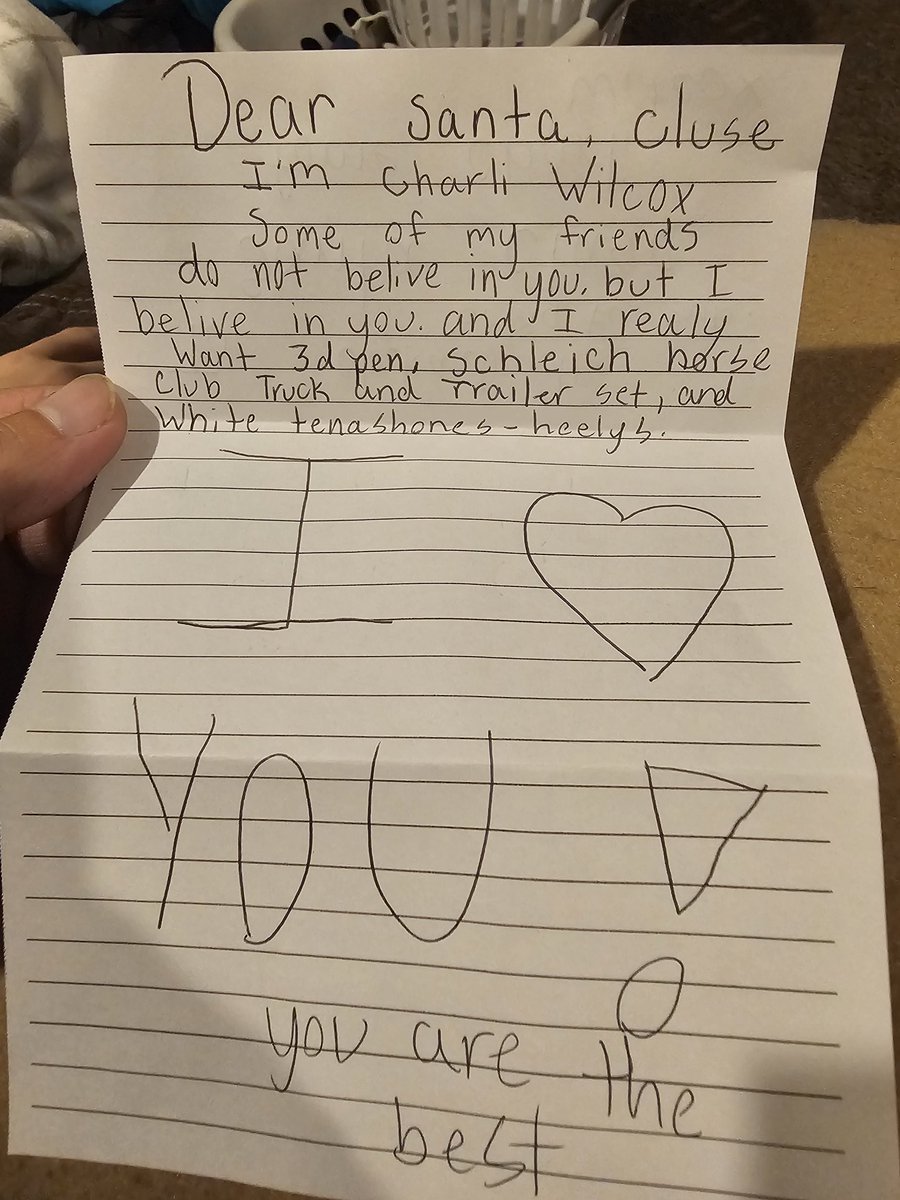 Dear santa, cluse
I'm Charli Wilcox
Some of my friends
do not belive in you. but I
belive in you. and I realy
Want 3d pen, schleich horse
Club Truck and Trailer set, and
White tenashones-heelys.
I
YOU
you are the
best